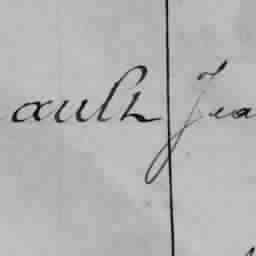 ault Jea